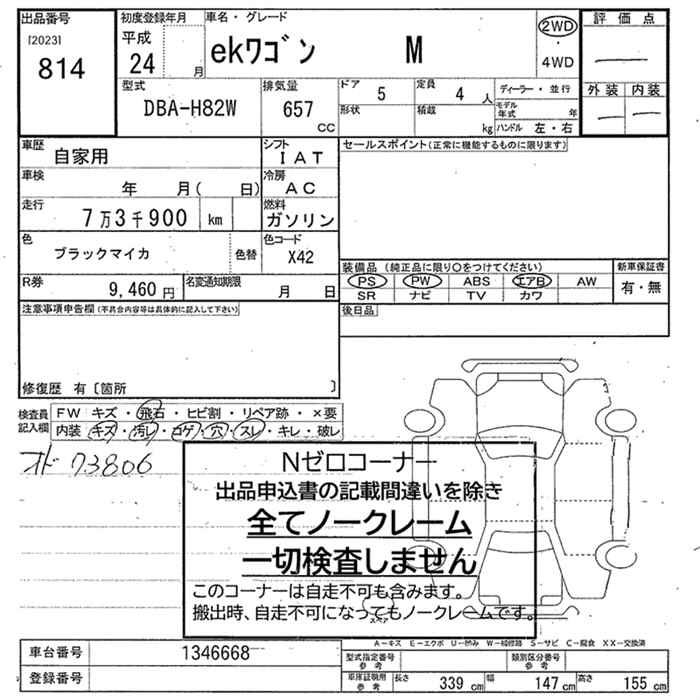 出品番号
[2023]
814
初度登録年月
平成
24 月
車名・グレード
ekワゴン M
2WD
・
4WD
評価点
―
外装 内装
― ―
型式
DBA-H82W
排気量
657
CC
ドア
5
定員
4 人
形状
積載
kg
ディーラー・並行
モデル年式 年
ハンドル 左・右
車歴
自家用
シフト
IAT
車検
年 月( 日)
冷房
AC
走行
7万3千900 km
燃料
ガソリン
色
ブラックマイカ
色替
色コード
X42
R券
9,460 円
名変通知期限
月 日
セールスポイント(正常に機能するものに限ります)
装備品 (純正品に限り○をつけてください)
PS PW ABS エアB AW
SR ナビ TV カワ
新車保証書
有・無
後日品
注意事項申告欄(不具合内容等は具体的に記入して下さい)
修復歴 有〔箇所 〕
検査員
記入欄
FW キズ・飛石・ヒビ割・リペア跡・×要
内装 キズ・汚レ・コゲ・穴・スレ・キレ・破レ
オド 73806
Nゼロコーナー
出品申込書の記載間違いを除き
全てノークレーム
一切検査しません
このコーナーは自走不可も含みます。
搬出時、自走不可になってもノークレームです。
スペア
A―キズ E―エクボ U―凹み W―補修跡 S―サビ C―腐食 XX―交換済
車台番号
1346668
登録番号
型式指定番号
参考
類別区分番号
参考
車庫証明用
参考
長さ 339 cm
幅 147 cm
高さ 155 cm